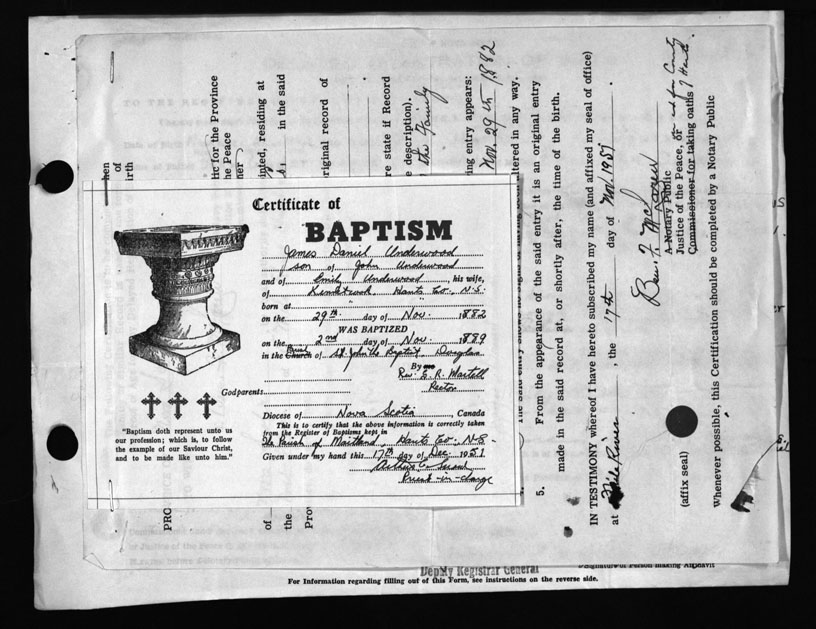 Certificate of
BAPTISM
James Daniel Underwood
son of John Underwood
and of Emily Underwood his wife,
of Kennetcook, Hants Co., N.S.
born at " "
on the 29th day of Nov. 1882
WAS BAPTIZED
on the 2nd day of Nov. 1889
in the Church of St. John the Baptist, Douglas
By
Rev. E. R. Martell
Rector
Godparents
Diocese of Nova Scotia, Canada
This is to certify that the above information is correctly taken
from the Register of Baptisms kept in
The Parish of Maitland, Hants Co., N.S.
Given under my hand this 17th day of Dec. 1951
Priest-in-charge
"Baptism doth represent unto us
our profession; which is, to follow
the example of our Saviour Christ,
and to be made like unto him."
hen
of
irth
for the Province
he Peace
ner
inted, residing at
in the said
riginal record of
re state if Record
e description).
the Family
ing entry appears:
Nov. 29th 1882
tered in any way.
5. From the appearance of the said entry it is an original entry
made in the said record at, or shortly after, the time of the birth.
IN TESTIMONY whereof I have hereto subscribed my name (and affixed my seal of office)
at Nile River, the 17th day of Nov. 1957.
A Notary Public
Justice of the Peace, or and for County
Commissioner for taking oaths of Hants.
(affix seal)
Whenever possible, this Certification should be completed by a Notary Public
PRO
of
the
Prov
Deputy Registrar General
Signature of Person making Affidavit
For Information regarding filling out of this Form, see instructions on the reverse side.